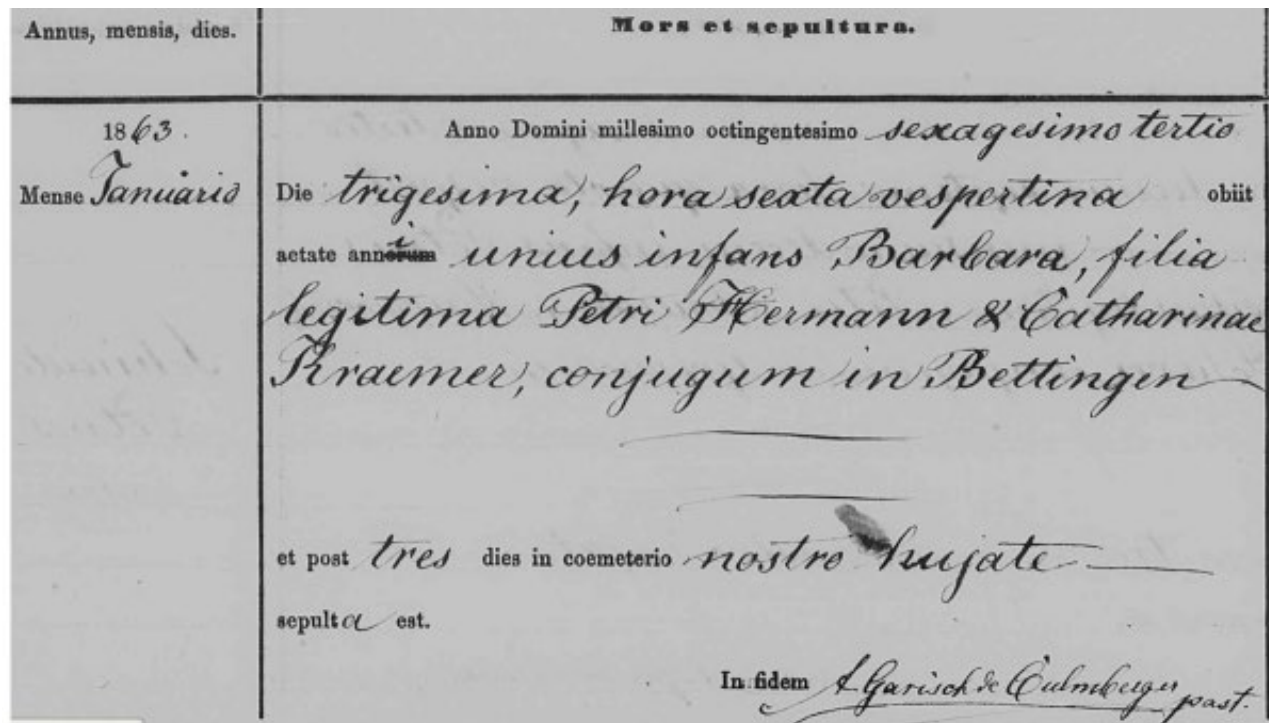 Annus, mensis, dies.
Mors et sepultura.
1863.
Mense Januario
Anno Domini millesimo octingentesimo sexagesimo tertio
Die trigesima, hora sexta vespertina obiit
aetate anni unius infans Barbara, filia
legitima Petri Hermann & Catharinae
Kraemer, conjugum in Bettingen
et post tres dies in coemeterio nostro hujate
sepulta est.
In fidem A Garisch de Culmberger past.